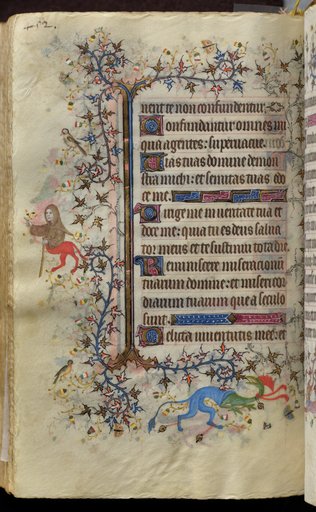 nent te non confundentur
Confundantur omnes ini
qua agentes: supervacue.
Vias tuas domine demon
stra michi: et semitas tuas edo
ce me.
Dirige me in veritate tua et
doce me: quia tu es deus salva
tor meus et te sustinui tota die.
Reminiscere miseracionu
tuarum domine: et misericor
diarum tuarum que a seculo
sunt.
Delicta iuventutis mee: et